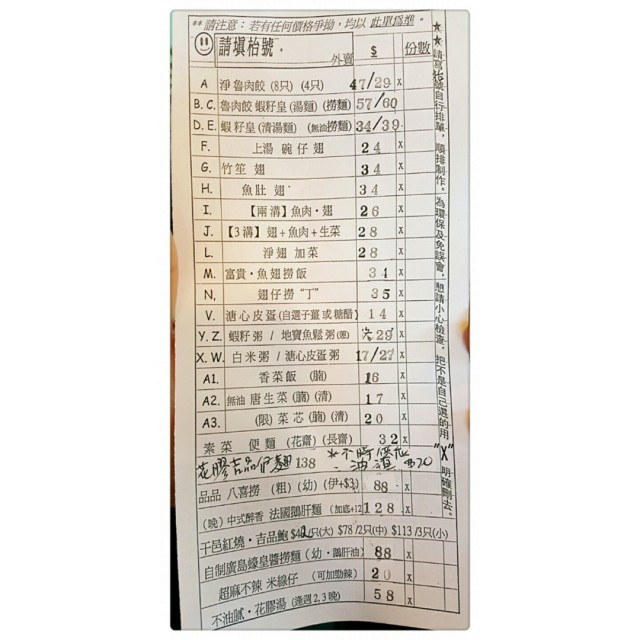 **請注意：若有任何價格爭拗，均以 此單為準。
請填枱號。 外賣 $ 份數
A 淨魯肉餃 (8只) (4只) 47/29 x
B.C. 魯肉餃 蝦籽皇 (湯麵) (撈麵) 57/60
D.E. 蝦籽皇 (清湯麵) (無油撈麵) 34/39
F. 上湯 碗仔 翅 24 x
G. 竹笙 翅 34 x
H. 魚肚 翅 34 x
I. 【兩溝】魚肉·翅 26 x
J. 【3溝】翅+魚肉+生菜 28 x
L. 淨翅 加菜 28 x
M. 富貴·魚翅撈飯 34 x
N, 翅仔撈 "丁" 35 x
V. 溏心皮蛋(自選子薑或糖醋) 14 x
Y.Z. 蝦籽粥 / 地寶魚鬆粥(蔥) 29 x
X.W. 白米粥 / 溏心皮蛋粥 17/27 x
A1. 香菜飯 (腩) 16 x
A2. 無油 唐生菜 (腩) (清) 17 x
A3. (限) 菜芯 (腩) (清) 20 x
素菜 便麵 (花齋) (長齋) 32 x
花膠吉品 138
油渣 $20
品品 八喜撈 (粗) (幼) (伊+$3) 88 x
(晚) 中式醉香 法國鵝肝麵 (加底+12) 128 x
干邑紅燒·吉品鮑 $42/只(大) $78/2只(中) $113/3只(小)
自制廣島蠔皇醬撈麵 (幼·鵝肝油) 88 x
超麻不辣 米線仔 (可加勁辣) 20 x
不油膩·花膠湯 (逢週2,3晚) 58 x
★★請寫枱號自行排單，順排制作，為環保及免誤會，懇請小心檢查，把不是自己選的用"X"明確刪去。